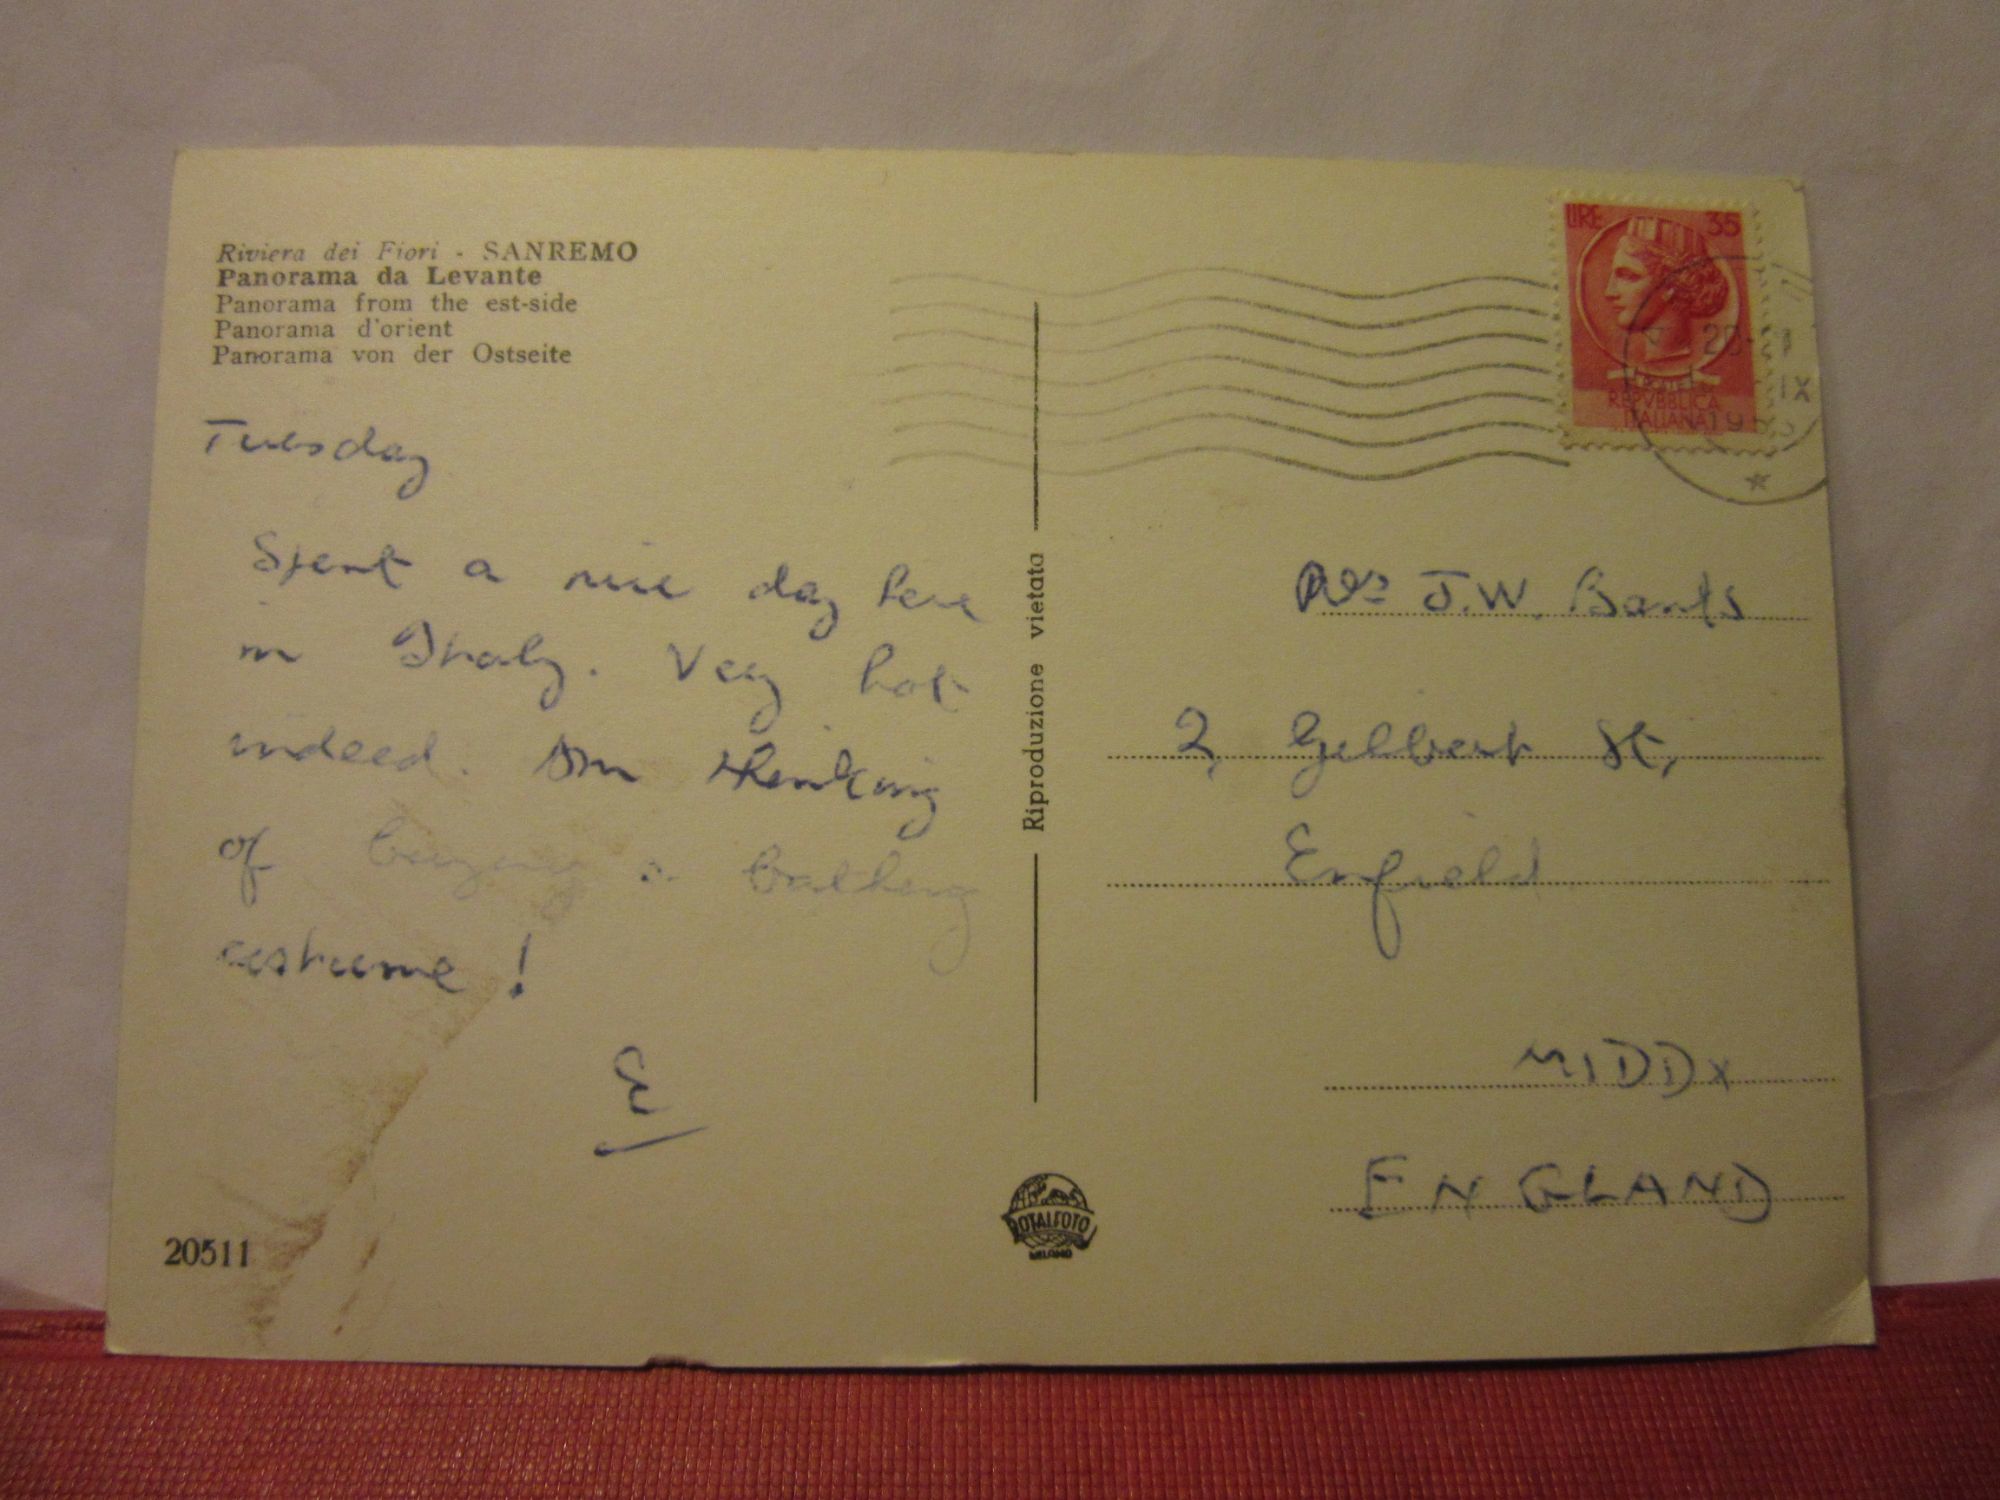 Riviera dei Fiori - SANREMO
Panorama da Levante
Panorama from the est-side
Panorama d'orient
Panorama von der Ostseite
Tuesday
Spent a nice day here
in Italy. Very hot
indeed. Am thinking
of buying a bathing
costume!
E
20511
Riproduzione vietata
ROTALFOTO
MILANO
LIRE 35
REPVBBLICA
ITALIANA
IX
J.W. Banks
2, Gilbert St,
Enfield
MIDDX
ENGLAND